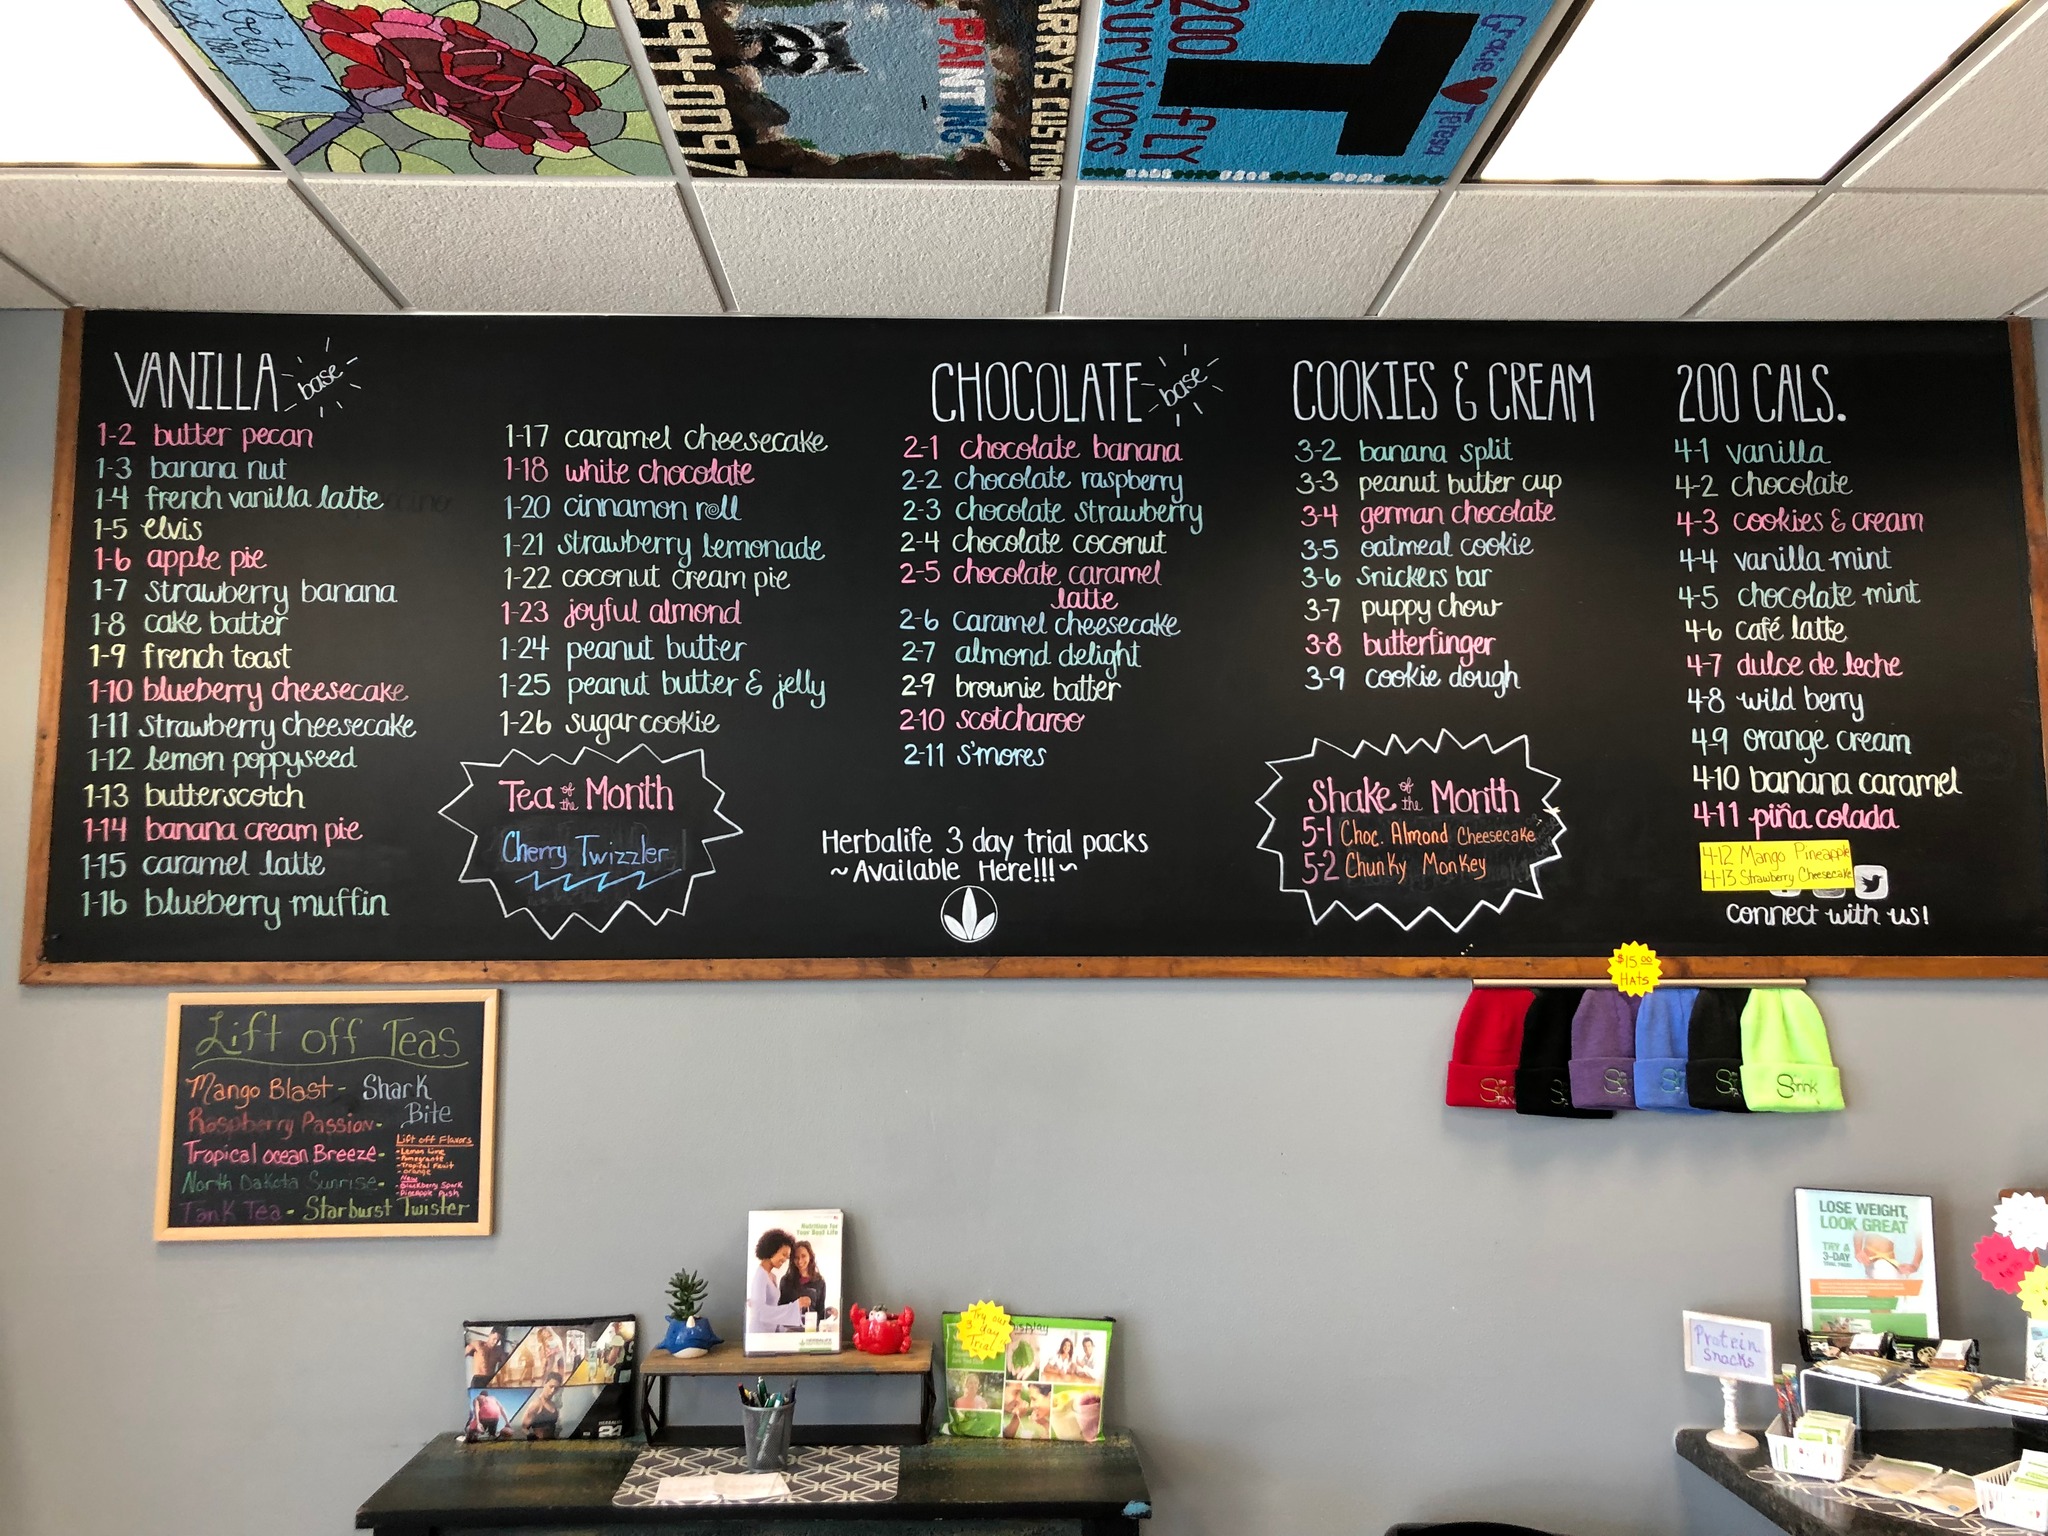 594-0097
PAINTING
ARRYS CUSTOM
200
FLY
Survivors
Gracie
Teresa
VANILLA base
1-2 butter pecan
1-3 banana nut
1-4 french vanilla latte
1-5 elvis
1-6 apple pie
1-7 strawberry banana
1-8 cake batter
1-9 french toast
1-10 blueberry cheesecake
1-11 strawberry cheesecake
1-12 lemon poppyseed
1-13 butterscotch
1-14 banana cream pie
1-15 caramel latte
1-16 blueberry muffin
1-17 caramel cheesecake
1-18 white chocolate
1-20 cinnamon roll
1-21 strawberry lemonade
1-22 coconut cream pie
1-23 joyful almond
1-24 peanut butter
1-25 peanut butter & jelly
1-26 sugar cookie
Tea of the Month
Cherry Twizzler
CHOCOLATE base
2-1 chocolate banana
2-2 chocolate raspberry
2-3 chocolate strawberry
2-4 chocolate coconut
2-5 chocolate caramel
latte
2-6 caramel cheesecake
2-7 almond delight
2-9 brownie batter
2-10 scotcharoo
2-11 s'mores
Herbalife 3 day trial packs
~Available Here!!!~
COOKIES & CREAM
3-2 banana split
3-3 peanut butter cup
3-4 german chocolate
3-5 oatmeal cookie
3-6 snickers bar
3-7 puppy chow
3-8 butterfinger
3-9 cookie dough
Shake of the Month
5-1 Choc. Almond Cheesecake
5-2 Chunky Monkey
200 CALS.
4-1 vanilla
4-2 chocolate
4-3 cookies & cream
4-4 vanilla mint
4-5 chocolate mint
4-6 café latte
4-7 dulce de leche
4-8 wild berry
4-9 orange cream
4-10 banana caramel
4-11 piña colada
4-12 Mango Pineapple
4-13 Strawberry Cheesecake
connect with us!
$15.00
HATS
Lift off Teas
Mango Blast - Shark
Bite
Raspberry Passion-
Tropical ocean Breeze-
North Dakota Sunrise-
Tank Tea - Starburst Twister
Lift off Flavors
- Lemon Lime
- Pomegranate
- Tropical Fruit
- orange
New
- Blackberry Spark
- Pineapple Push
Nutrition for
Your Best Life
Try our
3 day
Trial
Display
24
LOSE WEIGHT,
LOOK GREAT
TRY A
3-DAY
Protein
snacks